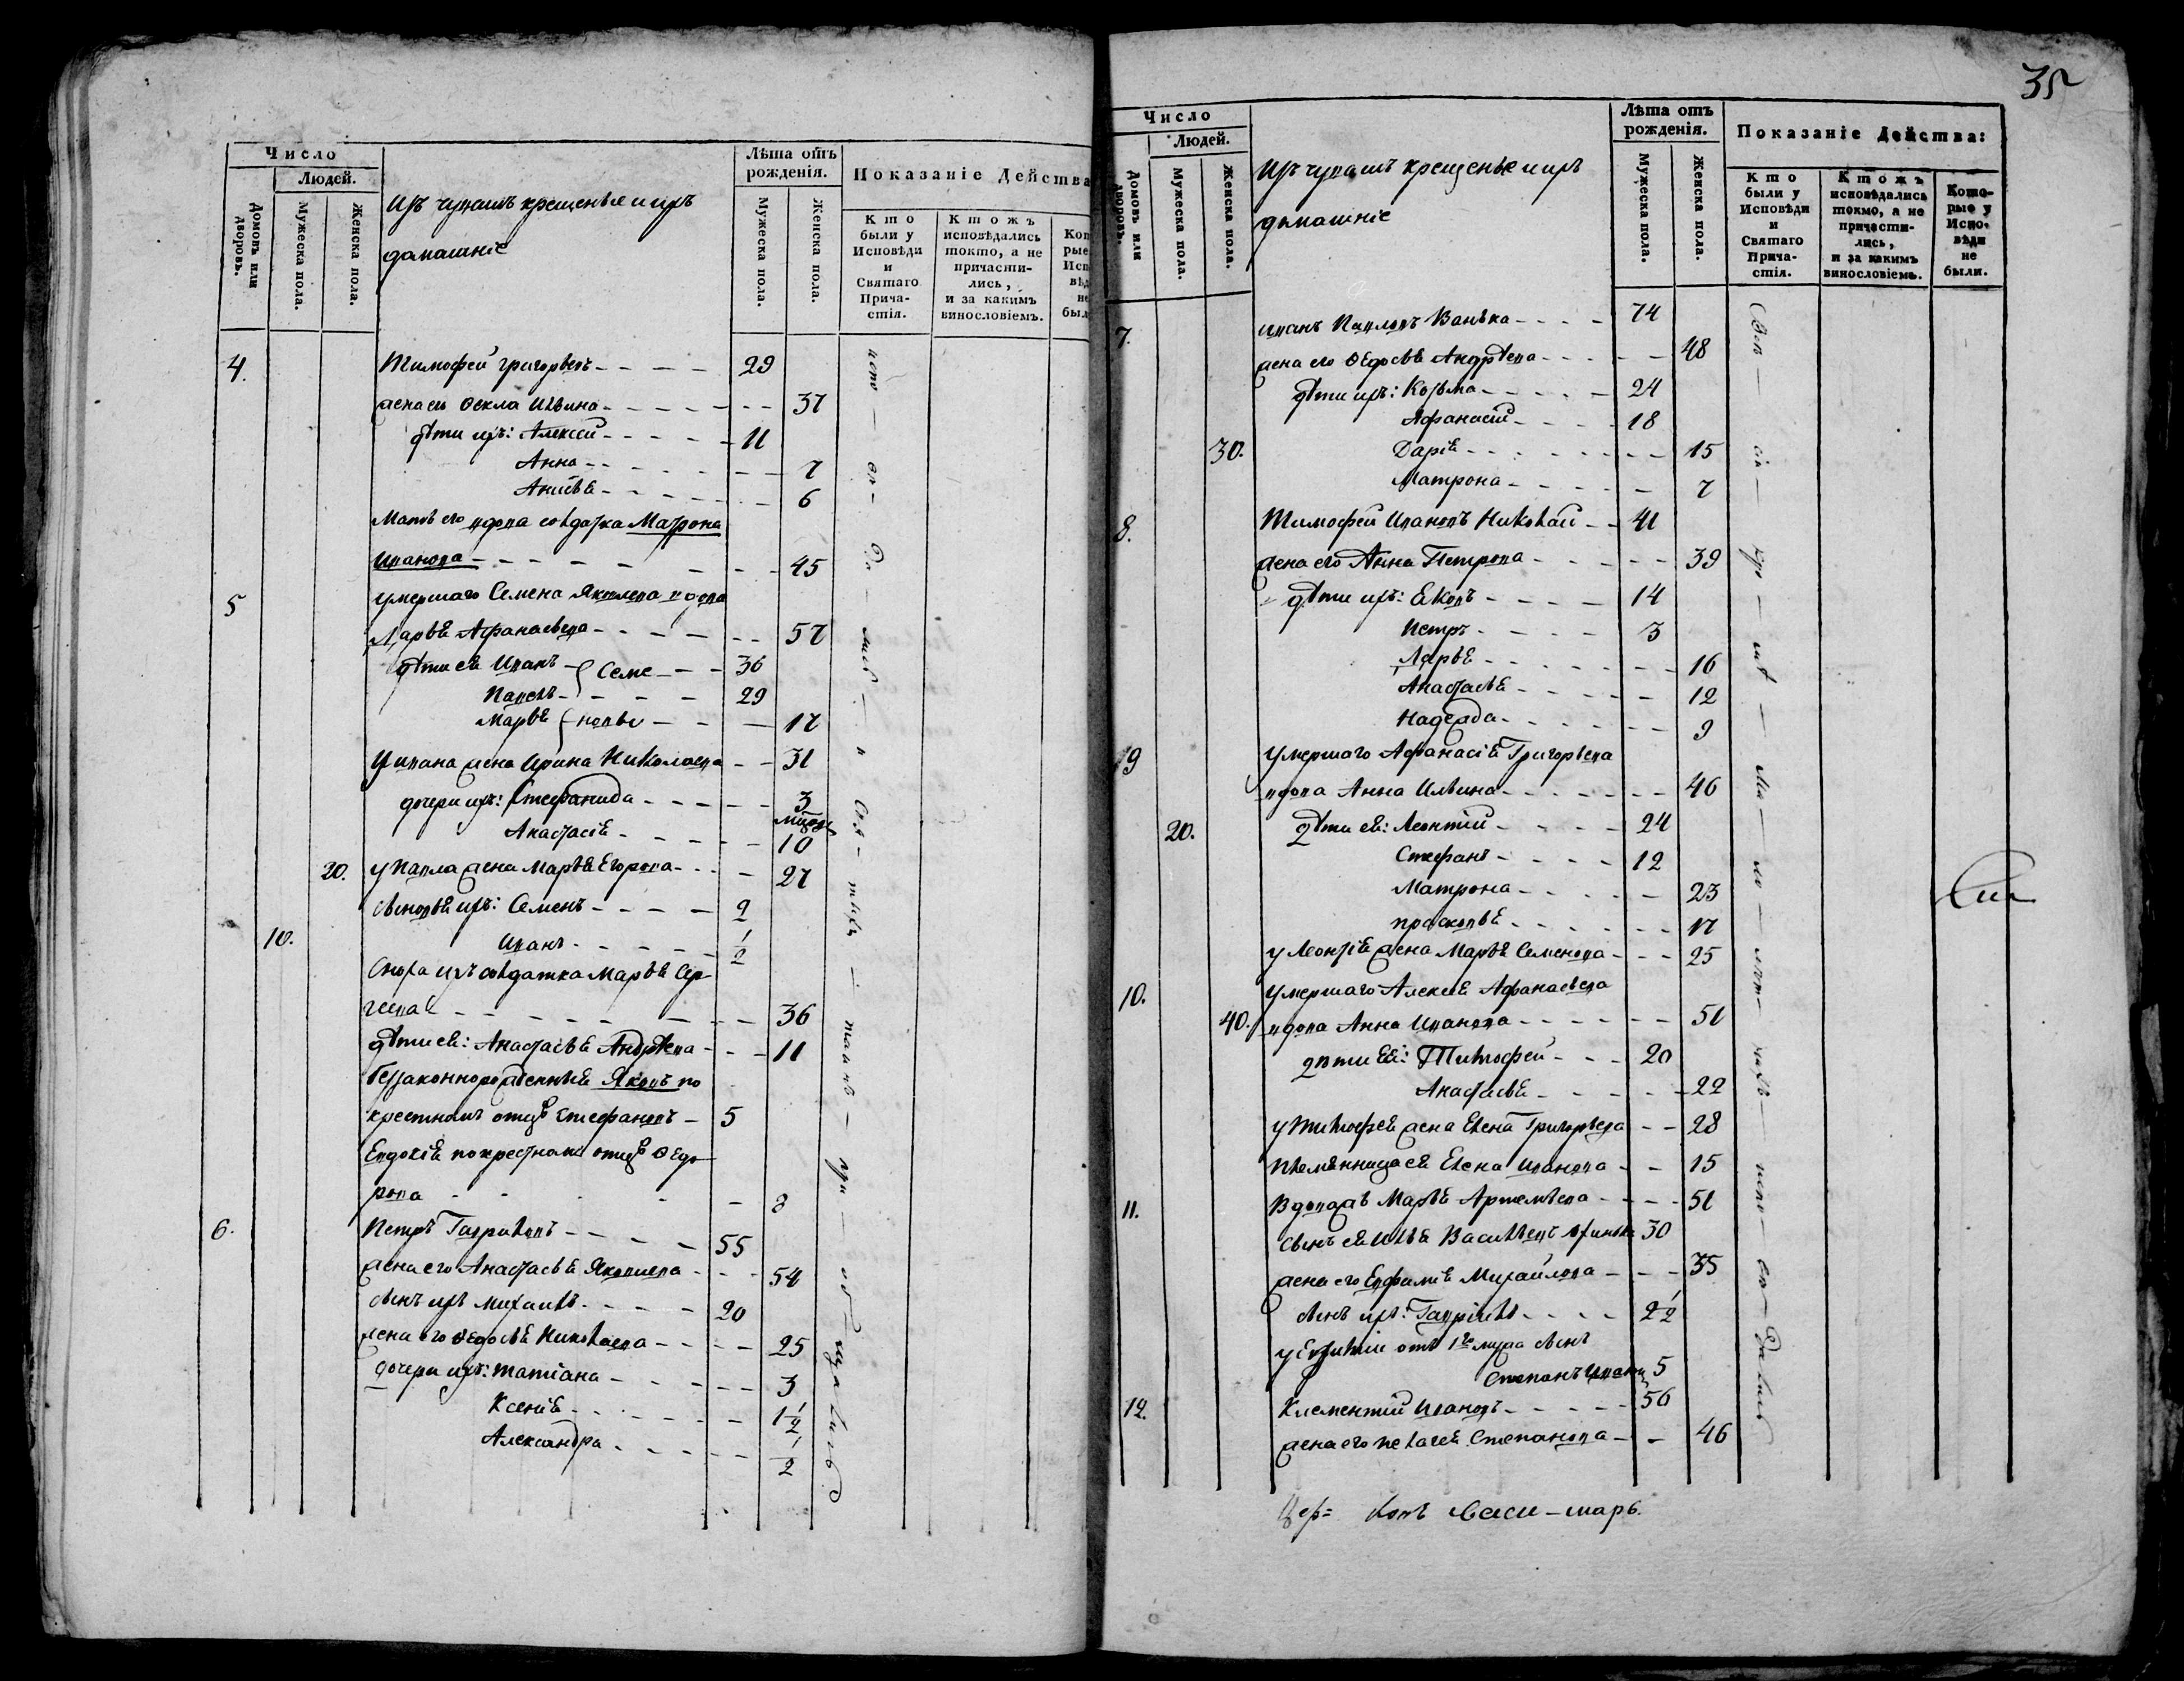 35
Число
Людей.
Домовъ или дворовъ.
Мужеска пола.
Женска пола.
Изъ чувашъ крещеныя и ихъ
домашніе
Лѣта отъ рожденія.
Мужеска пола.
Женска пола.
Показаніе Действа
Кто были у Исповѣди и Святаго Прича-стія.
Ктожъ исповѣдались токмо, а не причасти-лись, и за какимъ винословіемъ.
4. Тимофей Григорьевъ - - - - 29
жена ею Оекла Ильина - - - - 37
дѣти ихъ: Алексей - - - - 11
Анна - - - - 7
Анисья - - - - 6
Мать его вдова солдатка Матрона
Иванова - - - - 45
5 умершаго Семена Яковлева вдова
Марья Афанасьева - - - - 57
дѣти ея Иванъ } Семе - - 36
Павелъ - - - - 29
Марья } новы - - 17
У ивана жена Ирина Николаева - - 31
дочери ихъ: Стефанида - - - - 3
мѣсяц
Анастасія - - - - 10
20. у Павла жена Марья Егорова - - - 27
сыновья ихъ: Семенъ - - - - 2
10. Иванъ - - - - 1/2
Сноха ихъ солдатка Марья Сер-
геева - - - - 36
дѣти ея: Анастасья Андреева - - - 11
беззаконнорожденныя Яковъ по
крестномъ отцѣ Стефановъ - 5
Евдокія по крестномъ отцѣ Ѳедо-
рова - - - - 3
6. Петръ Гавриловъ - - - - 55
жена его Анастасья Яковлева - - - 54
сынъ ихъ Михаилъ - - - - 20
жена его Ѳедосья Николаева - - - - 25
дочери ихъ: Татіана - - - - 3
Ксенія - - - - 1 1/2
Александра - - - - 1/2
Число
Людей.
Домовъ или дворовъ.
Мужеска пола.
Женска пола.
Изъ чувашъ крещеные и ихъ
домашніе
Лѣта отъ рожденія.
Мужеска пола.
Женска пола.
Показаніе Действа:
Кто были у Исповѣди и Святаго Прича-стія.
Ктожъ исповѣдались токмо, а не причасти-лись, и за какимъ винословіемъ.
Кото-рые у Испо-вѣди не были.
7. иванъ Павловъ Ванька - - - - 74
жена его Ѳедосья Андреева - - - - 48
дѣти ихъ: Козьма - - - - 24
Афанасій - - - - 18
30. Дарія - - - - 15
Матрона - - - - 7
8. Тимофей Ивановъ Николай - - 41
жена его Анна Петрова - - - - 39
дѣти ихъ: Яковъ - - - - 14
Петръ - - - - 3
Марья - - - - 16
Анастасья - - - - 12
Надежда - - - - 9
9 умершаго Афанасія Григорьева
вдова Анна Ильина - - - - 46
20. дѣти ея: Леонтій - - - - 24
Стефанъ - - - - 12
Матрона - - - - 23
прасковья - - - - 17
у Леонтія жена Марья Семенова - - - 25
10. умершаго Алексея Афанасьева
40. вдова Анна Иванова - - - - 51
дѣти ея: Тимофей - - - 20
Анастасья - - - - 22
у Тимофея жена Елена Григорьева - - 28
племянница ея Елена Иванова - - 15
11. Вдова Марья Артемьева - - - - 51
сынъ ея Илья Васильевъ 30
жена его Евфимія Михайлова - - - 35
сынъ ихъ: Гавріилъ - - - - 2 1/2
у Евфиміи отъ 1го мужа сынъ
Степанъ Ивановъ 5
12. Климентій Ивановъ - - - - 56
жена его Пелагея Степанова - - 46